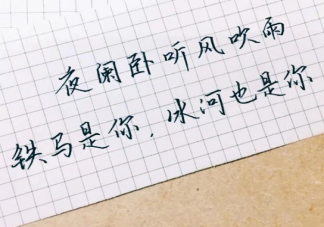 夜阑卧听风吹雨
铁马是你，冰河也是你